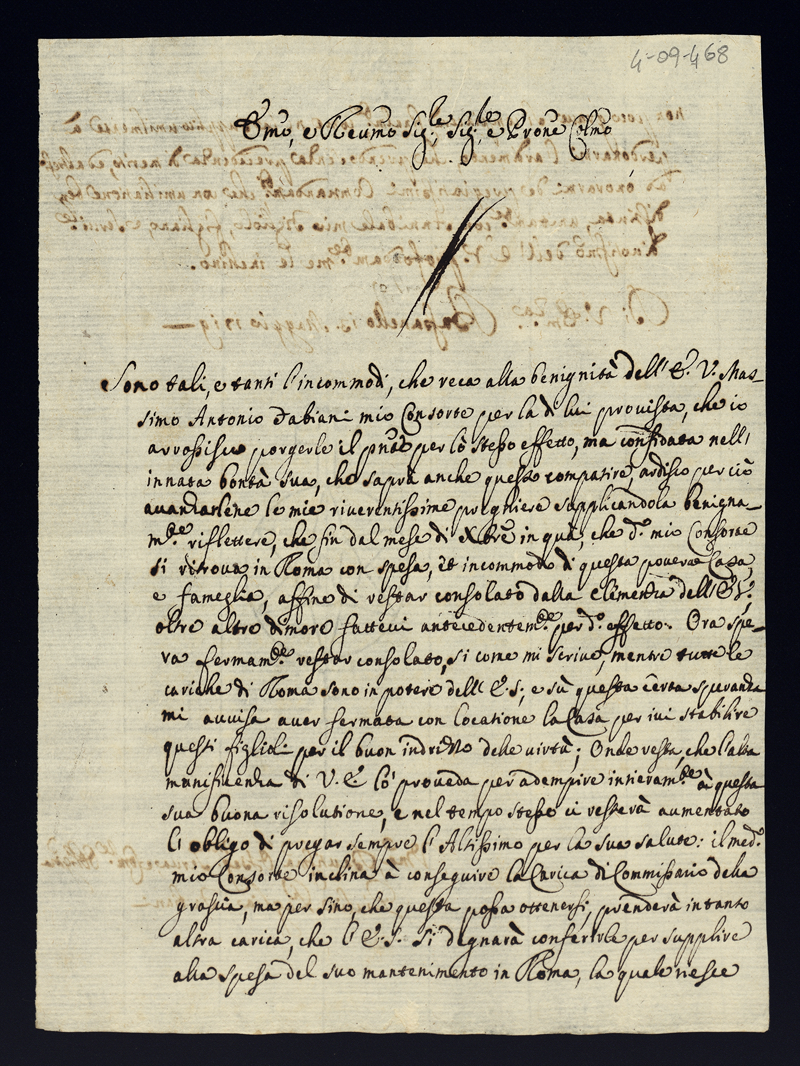 4-09-468
Emo, e Reumo Sig:le, Sig:le e Prone Colmo
Sono tali, e tanti l'incommodi, che reca alla benignità dell'E. V. Mas-
simo Antonio Fabiani mio Consorte per la di lui provista, che io
arrossisco porgerle il pnte per lo stesso effetto, ma confidata nell'
innata bontà sua, che saprà anche questo compatire, ardisco per ciò
avanzarlene le mie riverentissime preghiere supplicandola benigna-
m.te riflettere, che fin dal mese di Xbre in quà, che d.o mio Consorte
si ritrova in Roma con spesa, et incommodo di questa povera Casa,
e fameglia, affine di restar consolato dalla clemenza dell'E. S.
oltre altre dimore fattevi antecedentem.te per d.o effetto. Ora spe-
ra fermam.te restar consolato, si come mi scrive, mentre tutte le
cariche di Roma sono in potere dell'E. S.; e sù questa certa speranza
mi avvisa aver fermata con locatione la Casa per ivi stabilire
questi figlioli per il buon indrizzo delle virtù; Onde resta, che l'alta
munificenza di V. E. lo proveda per adempire intieram.te à questa
sua buona risolutione, e nel tempo stesso ci resterà aumentato
l'obligo di pregar sempre l'Altissimo per la sua salute: il med.o
mio Consorte inclina à conseguire la Carica di Commissario della
grascia, ma per sino, che questa possa ottenersi, prenderà intanto
altra carica, che l'E. S. si degnarà conferirle per supplire
alla spesa del suo mantenimento in Roma, la quale riesce